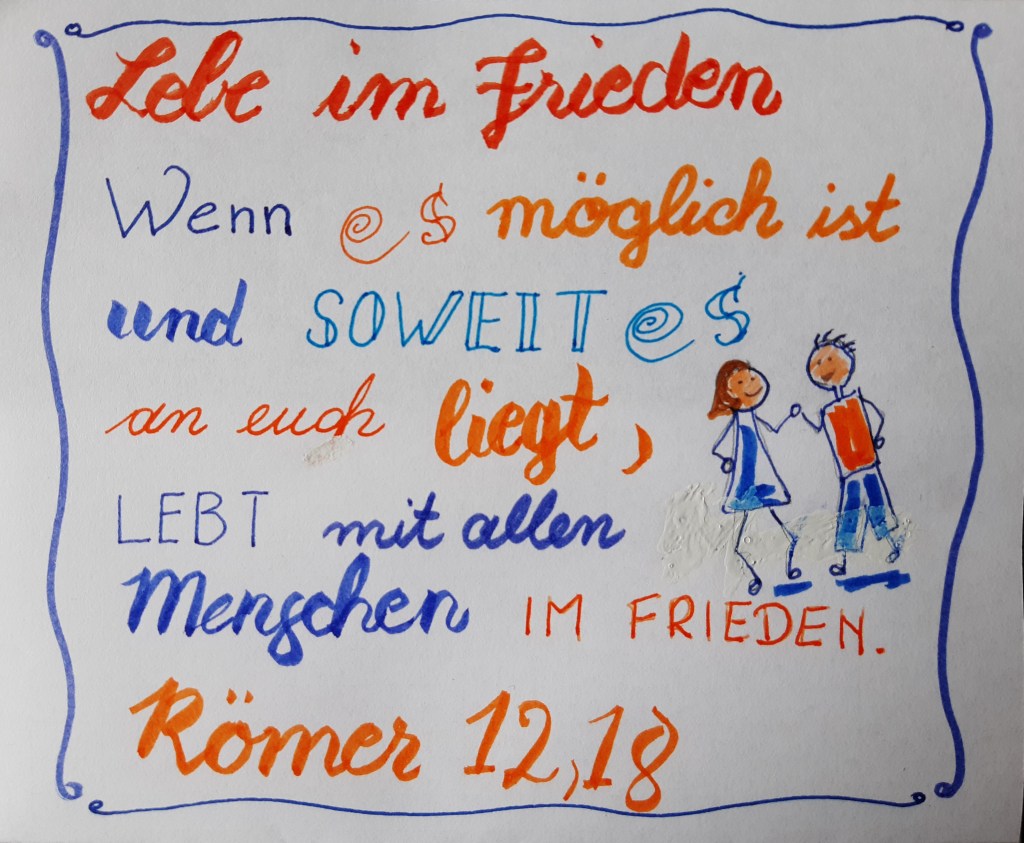 Lebe im Frieden
Wenn es möglich ist
und SOWEIT es
an euch liegt,
LEBT mit allen
Menschen IM FRIEDEN.
Römer 12,18